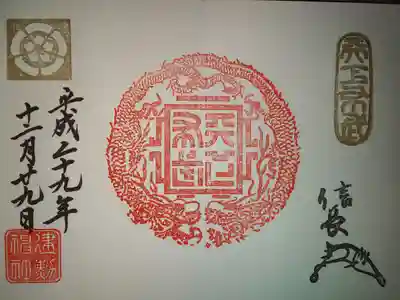 天下布武
信長
天下布武
平成二十九年
十一月廿九日
建勲神社